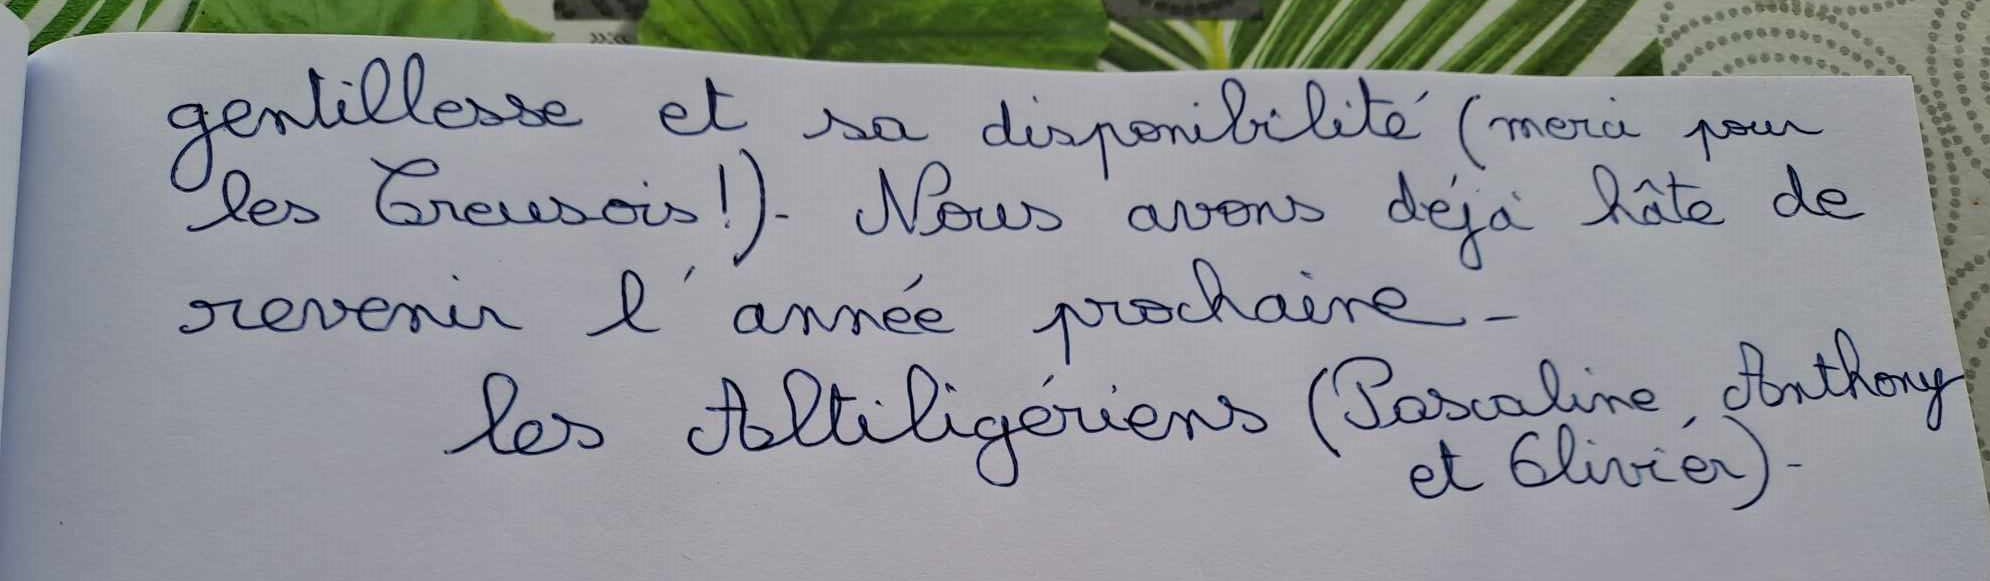 gentillesse et sa disponibilité (merci pour
les Creusois!). Nous avons déjà hâte de
revenir l'année prochaine.
les Altiligériens (Pascaline, Anthony
et Olivier).